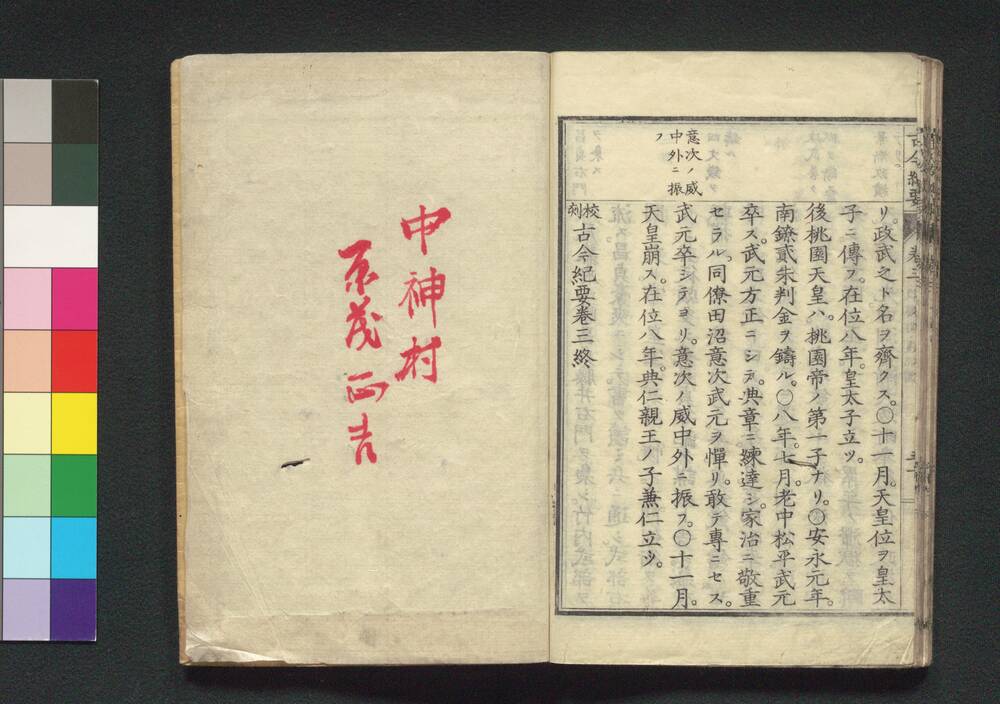 古今紀要 卷三
意次ノ威
中外ニ振
フ
リ。政武之ト名ヲ齊クス。〇十一月。天皇位ヲ皇太
子ニ傳フ。在位八年。皇太子立ツ。
後桃園天皇ハ。桃園帝ノ第一子ナリ。〇安永元年。
南鐐貳朱判金ヲ鑄ル。〇八年。七月。老中松平武元
卒ス。武元方正ニシテ。典章ニ練達シ。家治ニ敬重
セラル。同僚田沼意次武元ヲ憚リ。敢テ專ニセス。
武元卒シテヨリ。意次ノ威中外ニ振フ。〇十一月。
天皇崩ス。在位八年。典仁親王ノ子兼仁立ツ。
校刻古今紀要卷三終
中神村
茂正吉